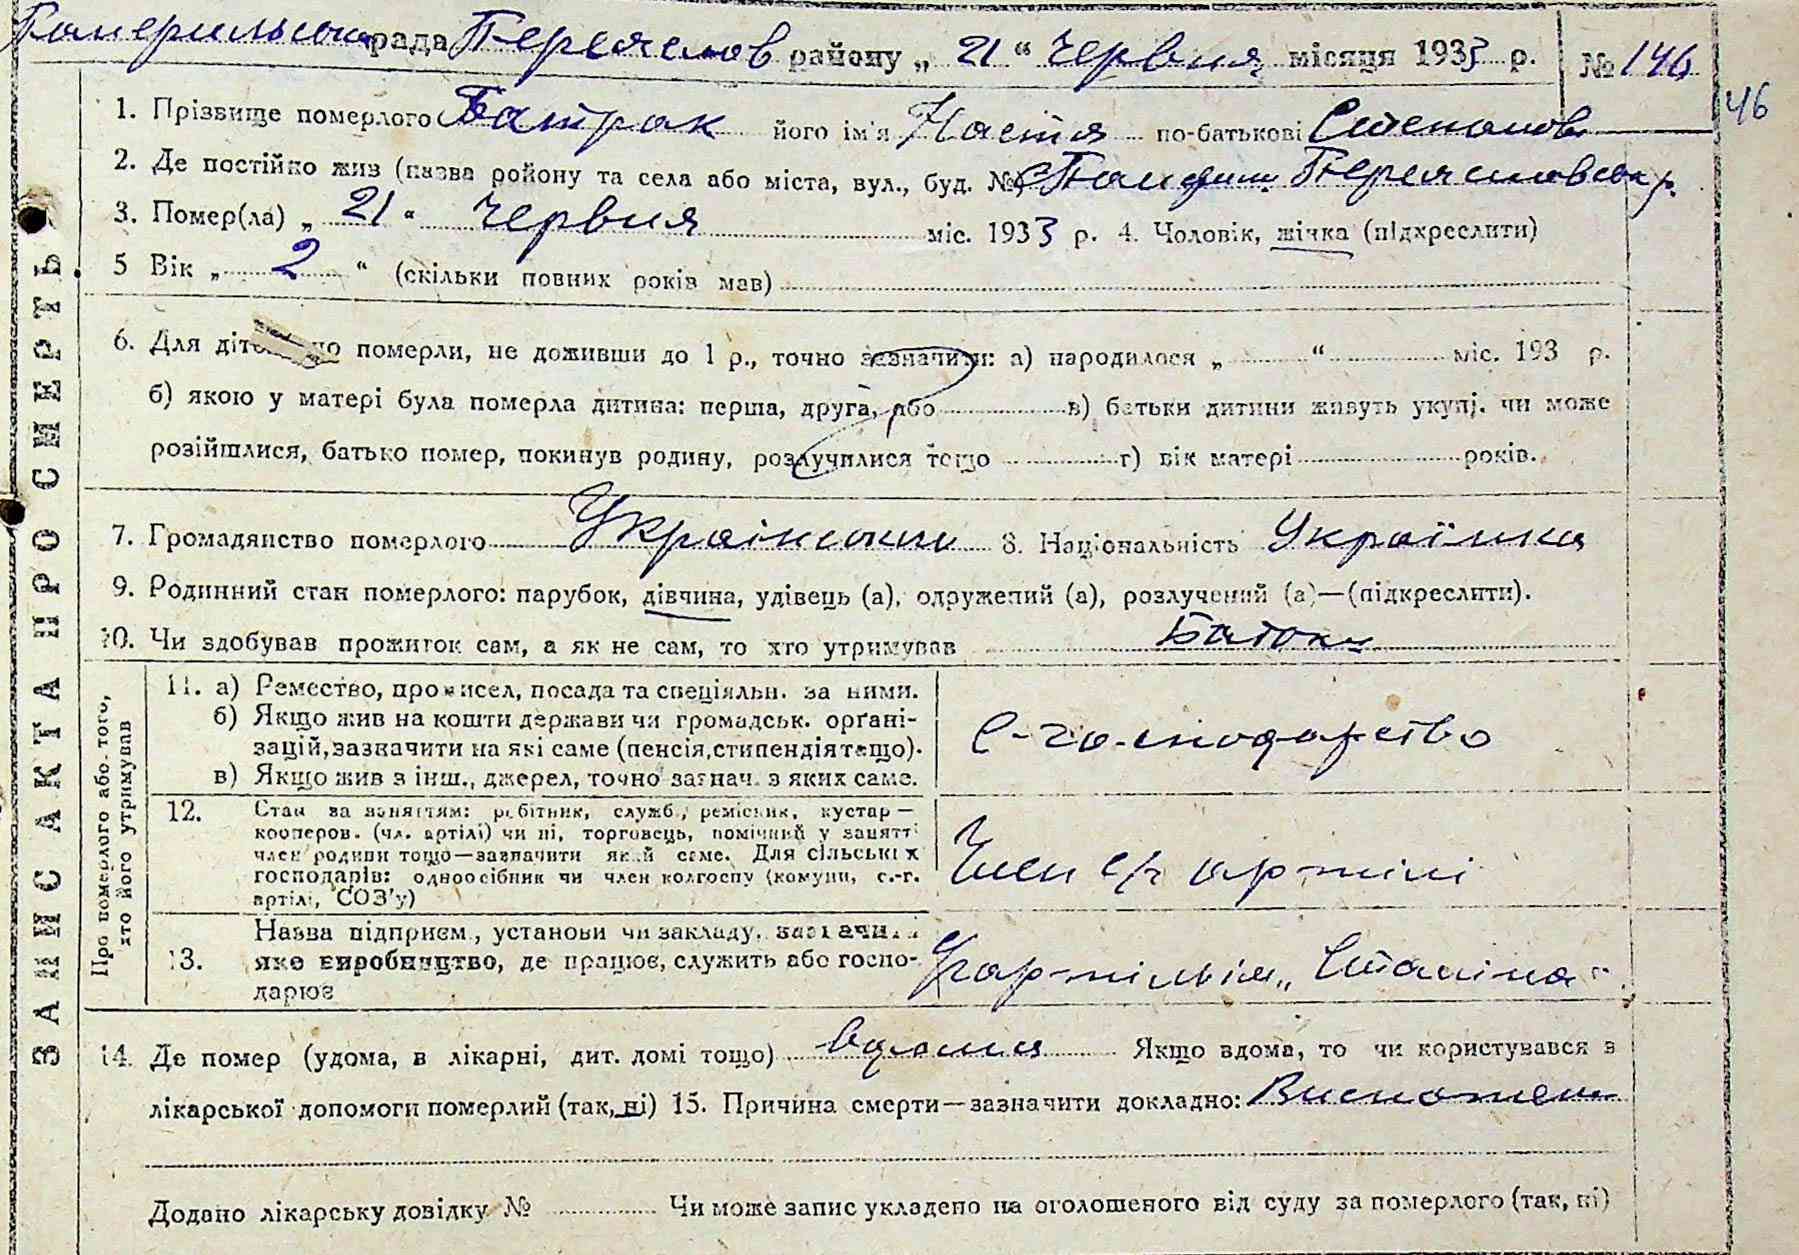 рада Переяслов району „ 21 “ Червня місяця 1933 р. № 146
46
1. Прізвище померлого Батрак його ім'я Настя по-батькові Степанов
2. Де постійно жив (назва ройону та села або міста, вул., буд. №) Переяславськ р.
3. Помер(ла) „ 21 “ Червня міс. 1933 р. 4. Чоловік, жінка (підхреслити)
5 Вік „ 2 “ (скільки повних років мав)
6. Для діт що померли, не доживши до 1 р., точно зазначити: а) народилося „ “ міс. 193 р.
б) якою у матері була померла дитина: перша, друга, або в) батьки дитини живуть укупі. чи може
розійшлися, батько помер, покинув родину, розлучилися тощо г) вік матері років.
7. Громадянство померлого 8. Національність Українка
9. Родинний стан померлого: парубок, дівчина, удівець (а), одружений (а), розлучений (а)—(підкреслити).
10. Чи здобував прожиток сам, а як не сам, то хто утримував Батьки
ЗАПИС АКТА ПРО СМЕРТЬ
Про померлого або того,
хто його утримував
11. а) Ремество, промисел, посада та спеціяльн. за ними.
б) Якщо жив на кошти держави чи громадськ. орґані-
зацій, зазначити на які саме (пенсія, стипендія тощо).
в) Якщо жив з інш., джерел, точно зазнач. з яких саме.
С-господарство
12. Стан за заняттям: робітник, служб., ремісник, кустар —
кооперов. (чл. артілі) чи ні, торговець, помічний у занятті
член родини тощо—зазначити який саме. Для сільських
господарів: одноосібник чи член колгоспу (комуни, с.-г.
артілі, СОЗ'у)
Член с/г артілі
13. Назва підприєм., установи чи закладу, зазначити
яке виробництво, де працює, служить або госпо-
дарює
„ Сталіна “
14. Де помер (удома, в лікарні, дит. домі тощо) вдома Якщо вдома, то чи користувався з
лікарської допомоги померлий (так, ні) 15. Причина смерти—зазначити докладно: Виснажен
Додано лікарську довідку № Чи може запис укладено на оголошеного від суду за померлого (так, ні)